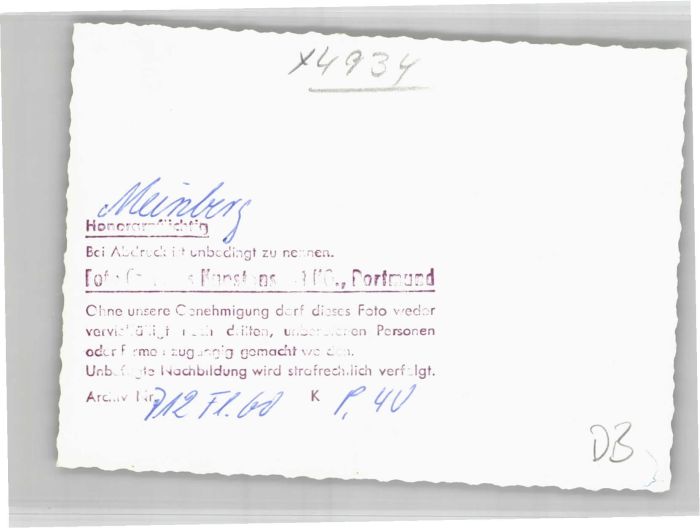 x4934
Meinberg
Honorarpflichtig
Bei Abdruck ist unbedingt zu nennen.
Foto KG., Dortmund
Ohne unsere Genehmigung darf dieses Foto weder
vervielfältigt noch dritten, unberufenen Personen
oder Firmen zugängig gemacht werden.
Unbefugte Nachbildung wird strafrechtlich verfolgt.
Archiv Nr. 712 Fl. 60 K P. 40
DB